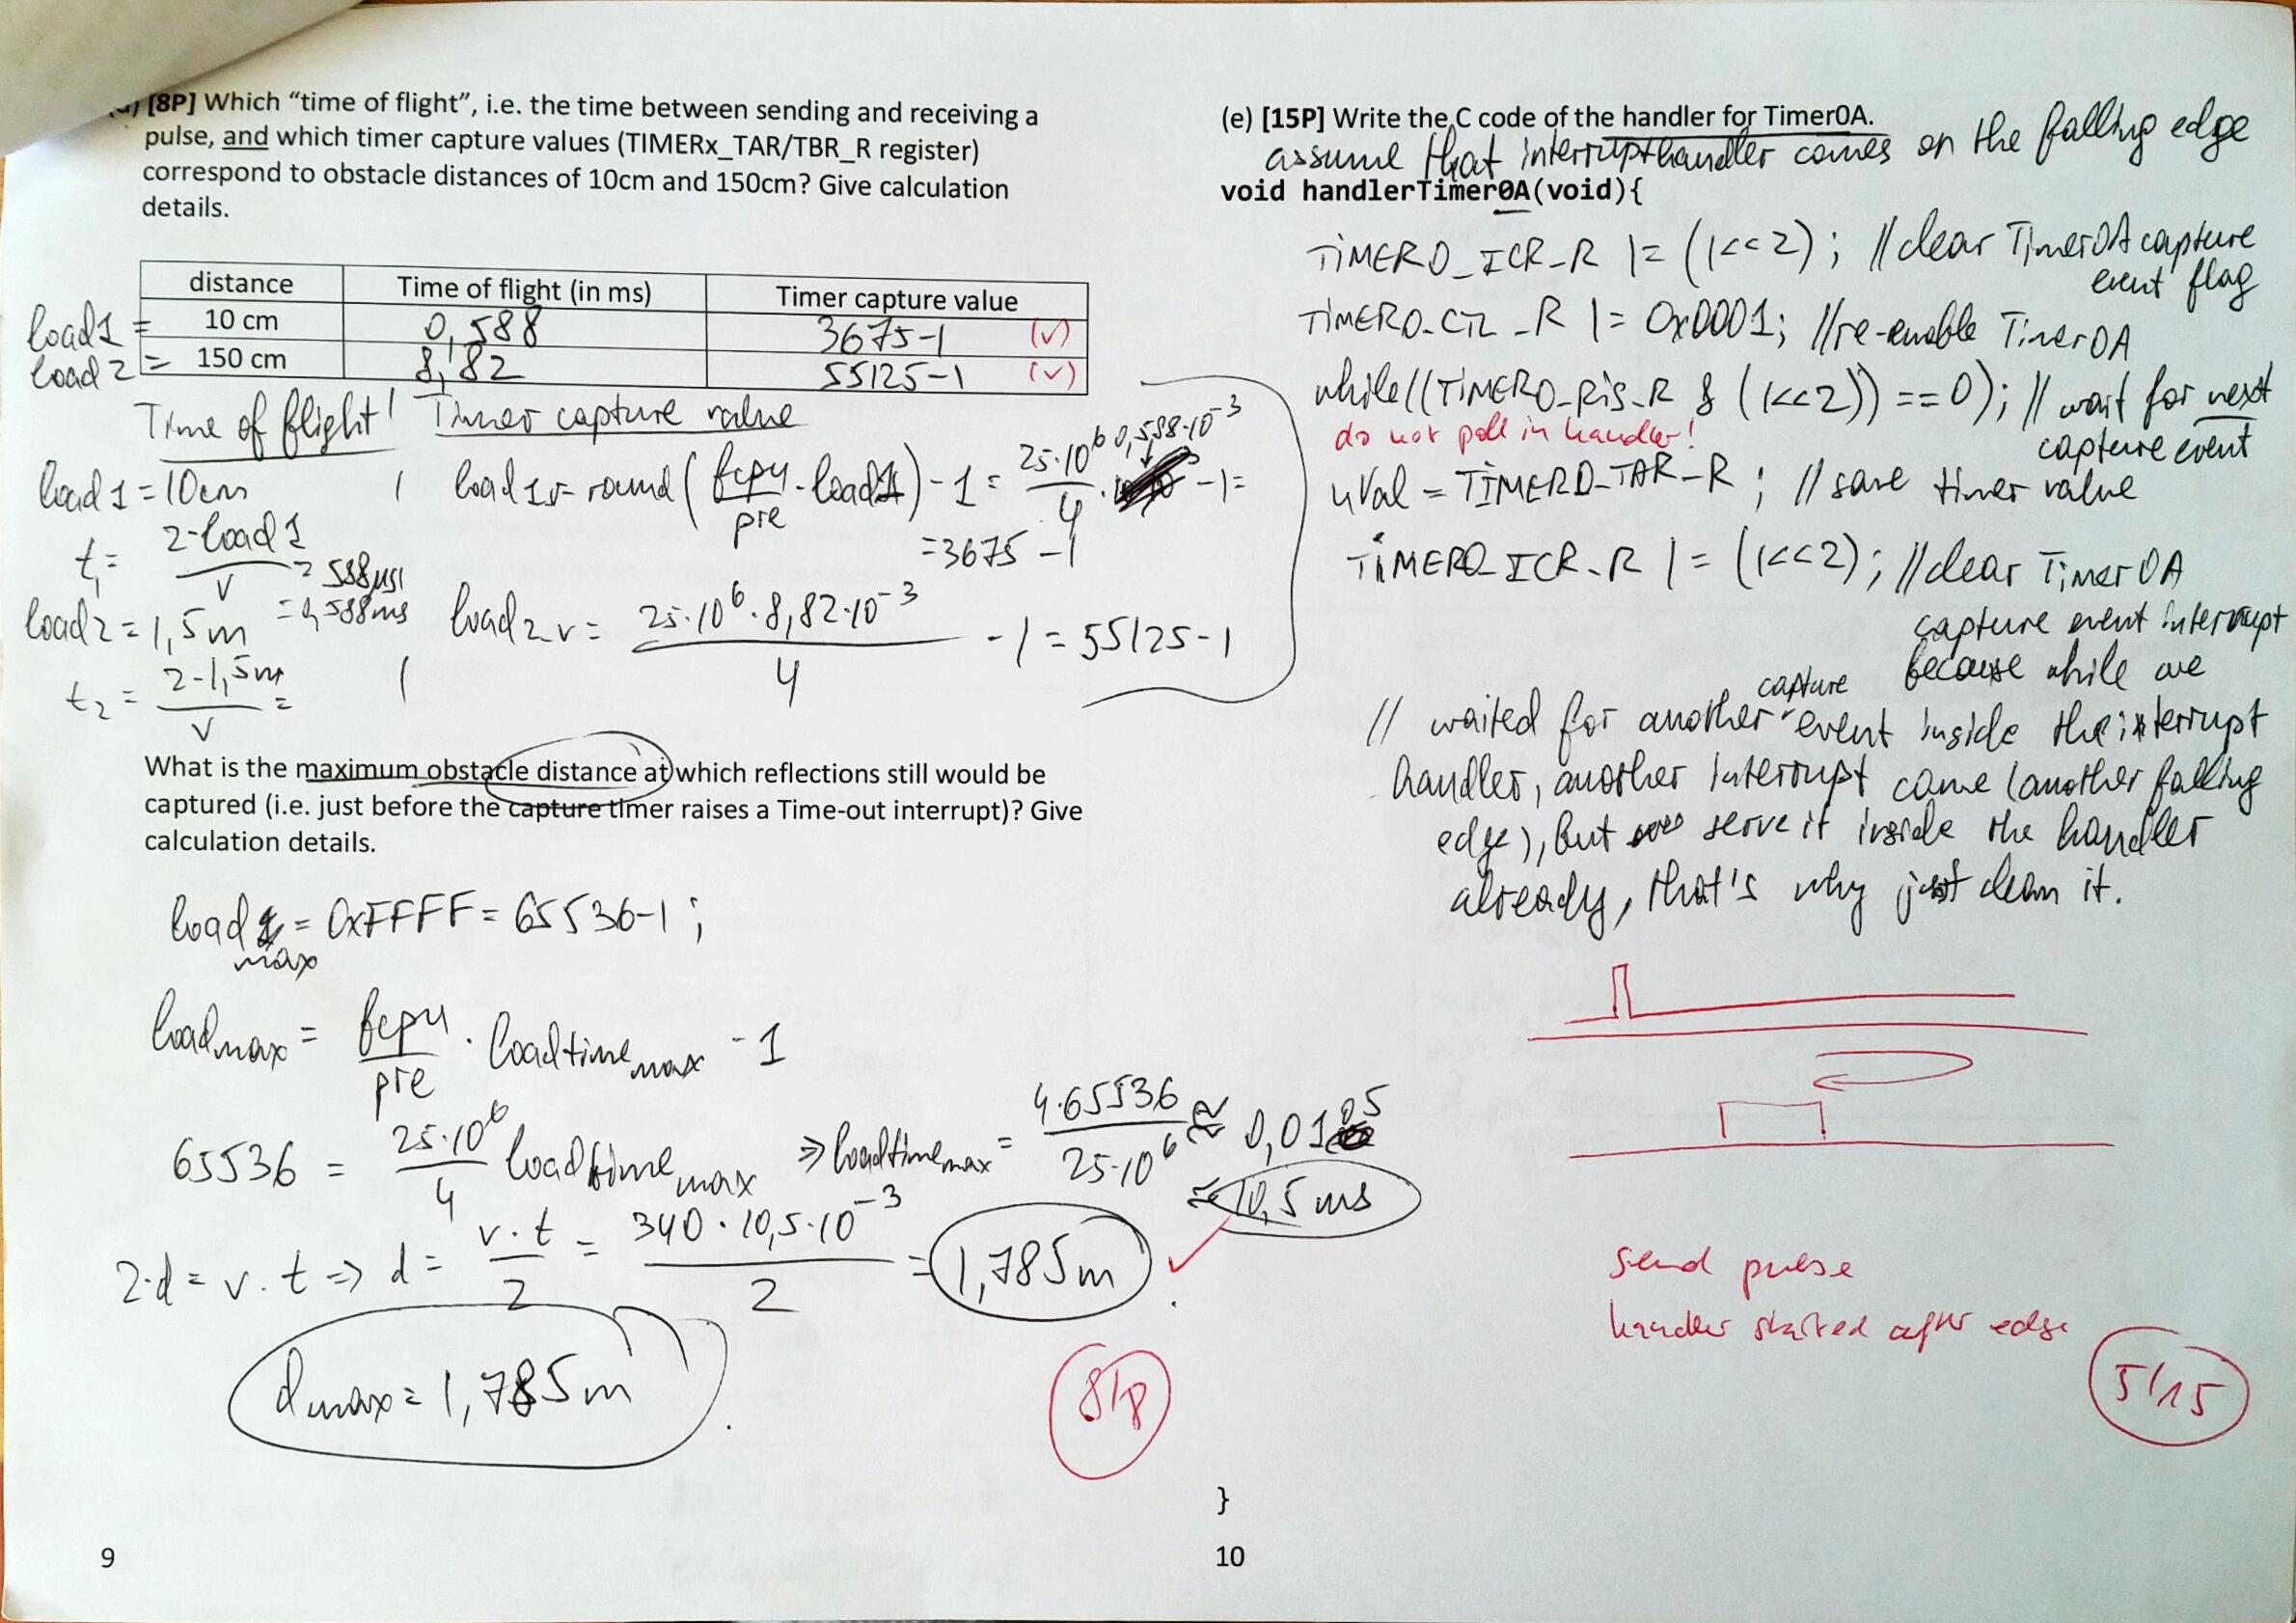 [8P] Which “time of flight”, i.e. the time between sending and receiving a
pulse, and which timer capture values (TIMERx_TAR/TBR_R register)
correspond to obstacle distances of 10cm and 150cm? Give calculation
details.
distance Time of flight (in ms) Timer capture value
load1 = 10 cm 0,588 3675-1 (√)
load2 = 150 cm 8,82 55125-1 (√)
Time of flight Timer capture value
load1 = 10cm
load1v = round(fcpu/pre · load1) - 1 = 25·10^6/4 · 0,588·10^-3 - 1 =
= 3675 - 1
t1 = 2·load1/v = 588µs
= 0,588ms
load2 = 1,5m
load2v = 25·10^6·8,82·10^-3/4 - 1 = 55125-1
t2 = 2·1,5m/v =
What is the maximum obstacle distance at which reflections still would be
captured (i.e. just before the capture timer raises a Time-out interrupt)? Give
calculation details.
load max = 0xFFFF = 65536-1;
loadmax = fcpu/pre · loadtime max - 1
65536 = 25·10^6/4 loadtime max => loadtime max = 4·65536/25·10^6 ≈ 0,0105
≈ 10,5 ms
2·d = v·t => d = v·t/2 = 340·10,5·10^-3/2 = 1,785m ✓
dmax = 1,785m
8/8
9
(e) [15P] Write the C code of the handler for Timer0A.
assume that interrupthandler comes on the falling edge
void handlerTimer0A(void){
TIMER0_ICR_R |= (1<<2); //clear Timer0A capture
event flag
TIMER0_CTL_R |= 0x0001; //re-enable Timer0A
while((TIMER0_RIS_R & (1<<2)) == 0); // wait for next
capture event
do not poll in handler!
uVal = TIMER0_TAR_R; // save timer value
TIMER0_ICR_R |= (1<<2); //clear Timer0A
capture event interrupt
because while we
// waited for another capture event inside the interrupt
handler, another interrupt came (another falling
edge), but serve it inside the handler
already, that's why just clean it.
send pulse
handler started after edge
5/15
}
10